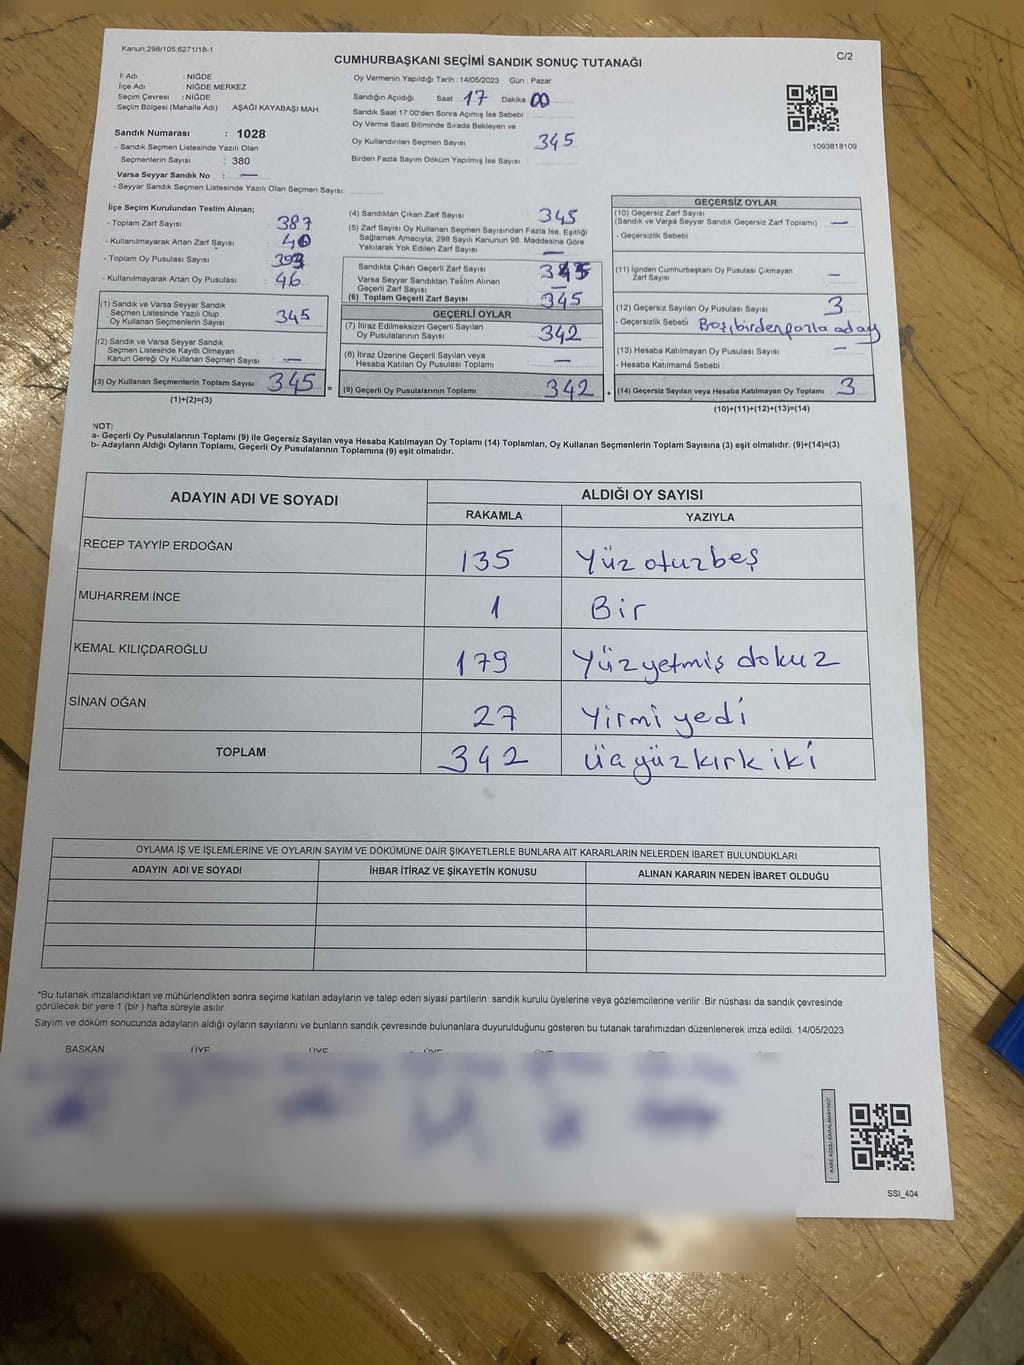 Kanun:298/105,6271/18-1
C/2
CUMHURBAŞKANI SEÇİMİ SANDIK SONUÇ TUTANAĞI
İl Adı : NİĞDE
İlçe Adı : NİĞDE MERKEZ
Seçim Çevresi : NİĞDE
Seçim Bölgesi (Mahalle Adı) : AŞAĞI KAYABAŞI MAH.
Sandık Numarası : 1028
- Sandık Seçmen Listesinde Yazılı Olan
Seçmenlerin Sayısı : 380
Varsa Seyyar Sandık No : —
- Seyyar Sandık Seçmen Listesinde Yazılı Olan Seçmen Sayısı:
Oy Vermenin Yapıldığı Tarih :14/05/2023 Gün : Pazar
Sandığın Açıldığı Saat : 17 Dakika 00
Sandık Saat 17:00'den Sonra Açımış İse Sebebi :
Oy Verme Saati Bitiminde Sırada Bekleyen ve
Oy Kullandırılan Seçmen Sayısı : 345
Birden Fazla Sayım Döküm Yapılmış İse Sayısı :
1093818109
İlçe Seçim Kurulundan Teslim Alınan;
- Toplam Zarf Sayısı : 387
- Kullanılmayarak Artan Zarf Sayısı : 40
- Toplam Oy Pusulası Sayısı : 393
- Kullanılmayarak Artan Oy Pusulası : 46
(1) Sandık ve Varsa Seyyar Sandık
Seçmen Listesinde Yazılı Olup
Oy Kullanan Seçmenlerin Sayısı : 345
(2) Sandık ve Varsa Seyyar Sandık
Seçmen Listesinde Kayıtlı Olmayan
Kanun Gereği Oy Kullanan Seçmen Sayısı : —
(3) Oy Kullanan Seçmenlerin Toplam Sayısı : 345 =
(1)+(2)=(3)
(4) Sandıktan Çıkan Zarf Sayısı : 345
(5) Zarf Sayısı Oy Kullanan Seçmen Sayısından Fazla İse, Eşitliği
Sağlamak Amacıyla, 298 Sayılı Kanunun 98. Maddesine Göre
Yakılarak Yok Edilen Zarf Sayısı : —
Sandıkta Çıkan Geçerli Zarf Sayısı : 345
Varsa Seyyar Sandıktan Teslim Alınan
Geçerli Zarf Sayısı : —
(6) Toplam Geçerli Zarf Sayısı : 345
GEÇERLİ OYLAR
(7) İtiraz Edilmeksizin Geçerli Sayılan
Oy Pusulalarının Sayısı : 342
(8) İtiraz Üzerine Geçerli Sayılan veya
Hesaba Katılan Oy Pusulası Toplamı : —
(9) Geçerli Oy Pusulalarının Toplamı : 342 +
GEÇERSİZ OYLAR
(10) Geçersiz Zarf Sayısı
(Sandık ve Varsa Seyyar Sandık Geçersiz Zarf Toplamı) : —
- Geçersizlik Sebebi :
(11) İçinden Cumhurbaşkanı Oy Pusulası Çıkmayan
Zarf Sayısı : —
(12) Geçersiz Sayılan Oy Pusulası Sayısı : 3
- Geçersizlik Sebebi : Boş, birden fazla aday
(13) Hesaba Katılmayan Oy Pusulası Sayısı : —
- Hesaba Katılmama Sebebi :
(14) Geçersiz Sayılan veya Hesaba Katılmayan Oy Toplamı : 3
(10)+(11)+(12)+(13)=(14)
NOT:
a- Geçerli Oy Pusulalarının Toplamı (9) ile Geçersiz Sayılan veya Hesaba Katılmayan Oy Toplamı (14) Toplamları, Oy Kullanan Seçmenlerin Toplam Sayısına (3) eşit olmalıdır. (9)+(14)=(3)
b- Adayların Aldığı Oyların Toplamı, Geçerli Oy Pusulalarının Toplamına (9) eşit olmalıdır.
ADAYIN ADI VE SOYADI ALDIĞI OY SAYISI
RAKAMLA YAZIYLA
RECEP TAYYİP ERDOĞAN 135 Yüz otuzbeş
MUHARREM İNCE 1 Bir
KEMAL KILIÇDAROĞLU 179 Yüzyetmiş dokuz
SİNAN OĞAN 27 Yirmi yedi
TOPLAM 342 üçyüzkırk iki
OYLAMA İŞ VE İŞLEMLERİNE VE OYLARIN SAYIM VE DÖKÜMÜNE DAİR ŞİKAYETLERLE BUNLARA AİT KARARLARIN NELERDEN İBARET BULUNDUKLARI
ADAYIN ADI VE SOYADI İHBAR İTİRAZ VE ŞİKAYETİN KONUSU ALINAN KARARIN NEDEN İBARET OLDUĞU
*Bu tutanak imzalandıktan ve mühürlendikten sonra seçime katılan adayların ve talep eden siyasi partilerin sandık kurulu üyelerine veya gözlemcilerine verilir .Bir nüshası da sandık çevresinde
görülecek bir yere 1 (bir ) hafta süreyle asılır.
Sayım ve döküm sonucunda adayların aldığı oyların sayılarını ve bunların sandık çevresinde bulunanlara duyurulduğunu gösteren bu tutanak tarafımızdan düzenlenerek imza edildi. 14/05/2023
BAŞKAN ÜYE ÜYE ÜYE ÜYE
KARE KODU KARALAMAYINIZ!
SSI_404